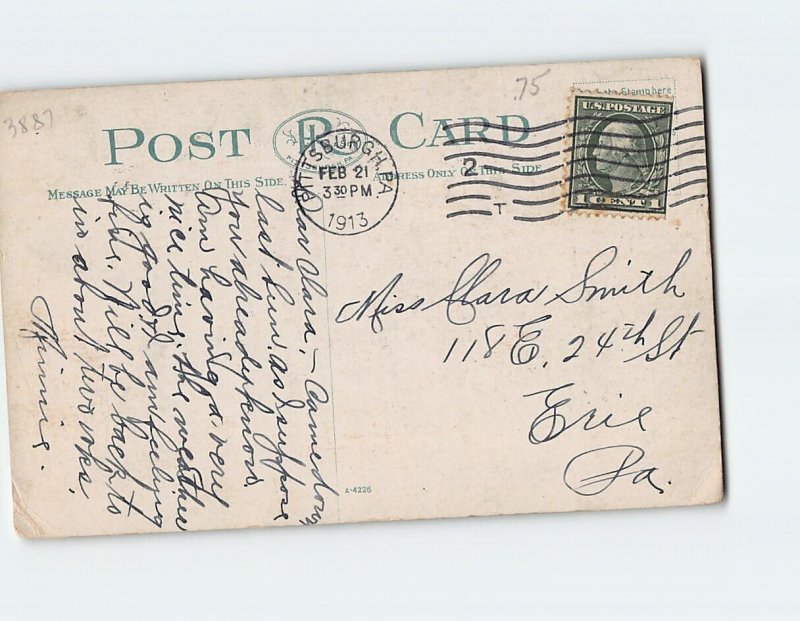 3887
.75
POST CARD
Stamp here
U.S. POSTAGE
1 CENT 1
MESSAGE MAY BE WRITTEN ON THIS SIDE
ADDRESS ONLY ON THIS SIDE
PITTSBURGH, PA.
FEB 21
3 30 PM
1913
2
T
Dear Clara; – Came down
last Sun. as I suppose
you already know.
Am having a very
nice time. The weather
is good & am feeling
fine. Will be back to
in about two wks.
Minnie.
Miss Clara Smith
118 E. 24th St
Erie
Pa.
A-4226